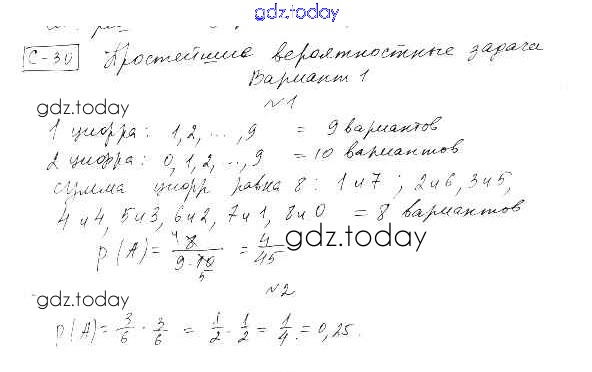 gdz.today
С-30 Простейшие вероятностные задачи
Вариант 1
№1
gdz.today
1 цифра: 1,2, ..., 9 = 9 вариантов
2 цифра: 0,1,2, ..., 9 = 10 вариантов
сумма цифр равна 8: 1 и 7; 2 и 6, 3 и 5,
4 и 4, 5 и 3, 6 и 2, 7 и 1, 8 и 0 = 8 вариантов
p(A) = 8/(9·10) = 4/45
gdz.today
№2
gdz.today
p(A) = 3/6 · 3/6 = 1/2 · 1/2 = 1/4 = 0,25.